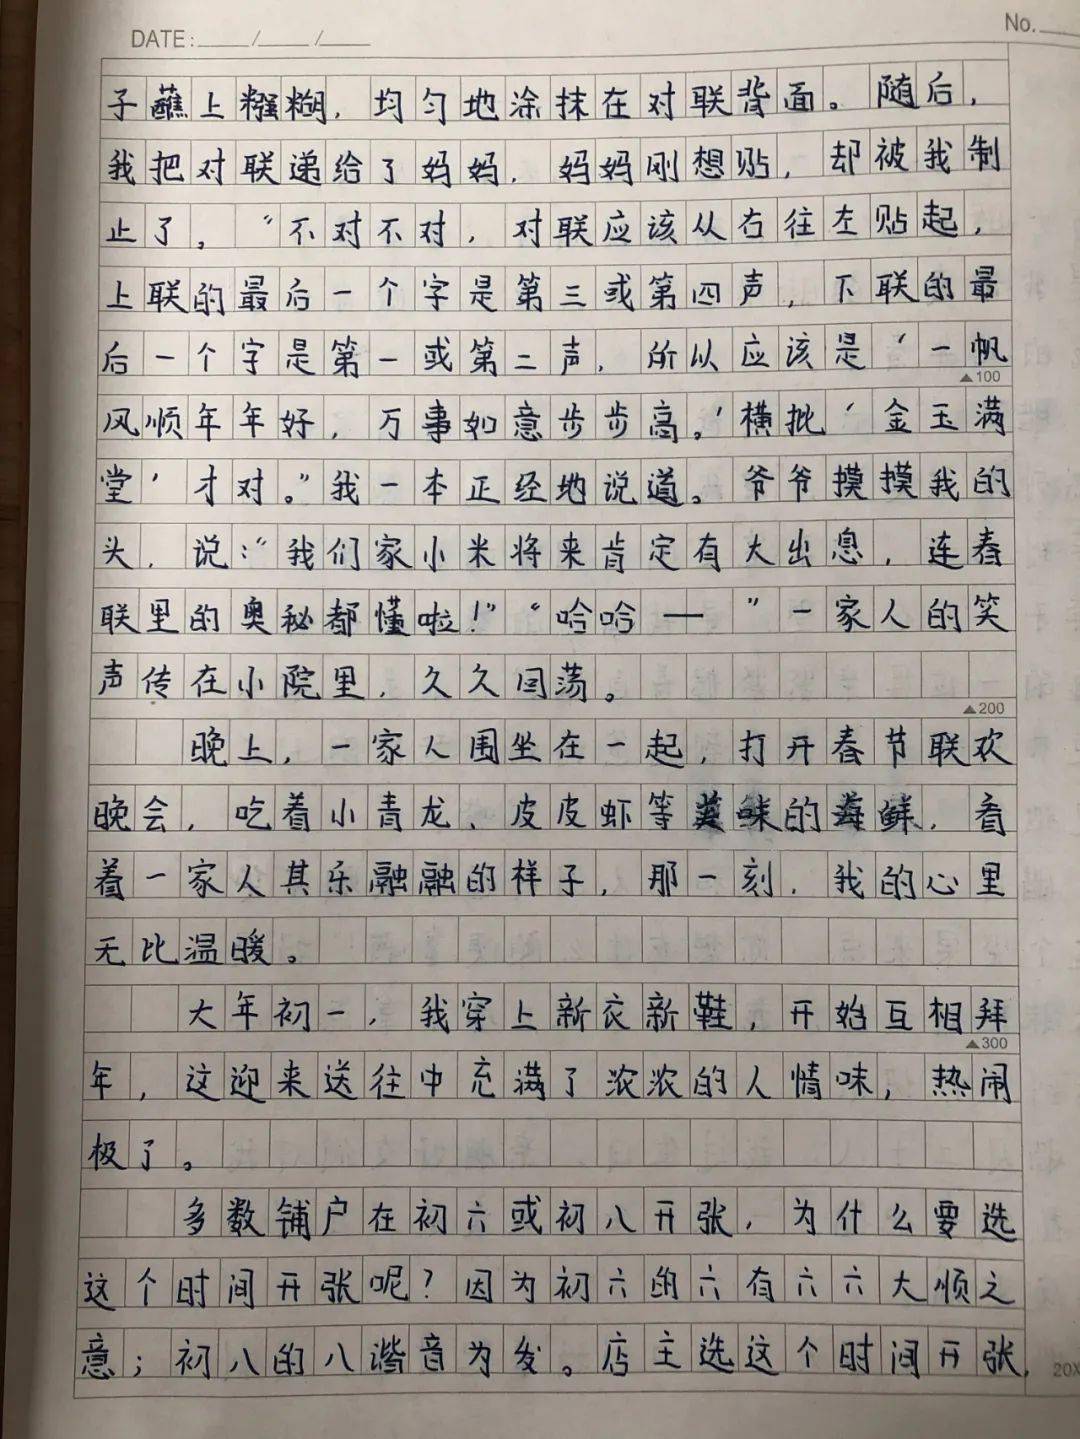 DATE:____/____/____
No.
子蘸上糨糊，均匀地涂抹在对联背面。随后，
我把对联递给了妈妈，妈妈刚想贴，却被我制
止了，“不对不对，对联应该从右往左贴起，
上联的最后一个字是第三或第四声，下联的最
后一个字是第一或第二声，所以应该是‘一帆
▲100
风顺年年好，万事如意步步高。’横批‘金玉满
堂’才对。”我一本正经地说道。爷爷摸摸我的
头，说：“我们家小米将来肯定有大出息，连春
联里的奥秘都懂啦！”“哈哈——”一家人的笑
声传在小院里，久久回荡。
▲200
晚上，一家人围坐在一起，打开春节联欢
晚会，吃着小青龙、皮皮虾等美味的海鲜，看
着一家人其乐融融的样子，那一刻，我的心里
无比温暖。
大年初一，我穿上新衣新鞋，开始互相拜
▲300
年，这迎来送往中充满了浓浓的人情味，热闹
极了。
多数铺户在初六或初八开张，为什么要选
这个时间开张呢？因为初六的六有六六大顺之
意；初八的八谐音为发。店主选这个时间开张，
20X